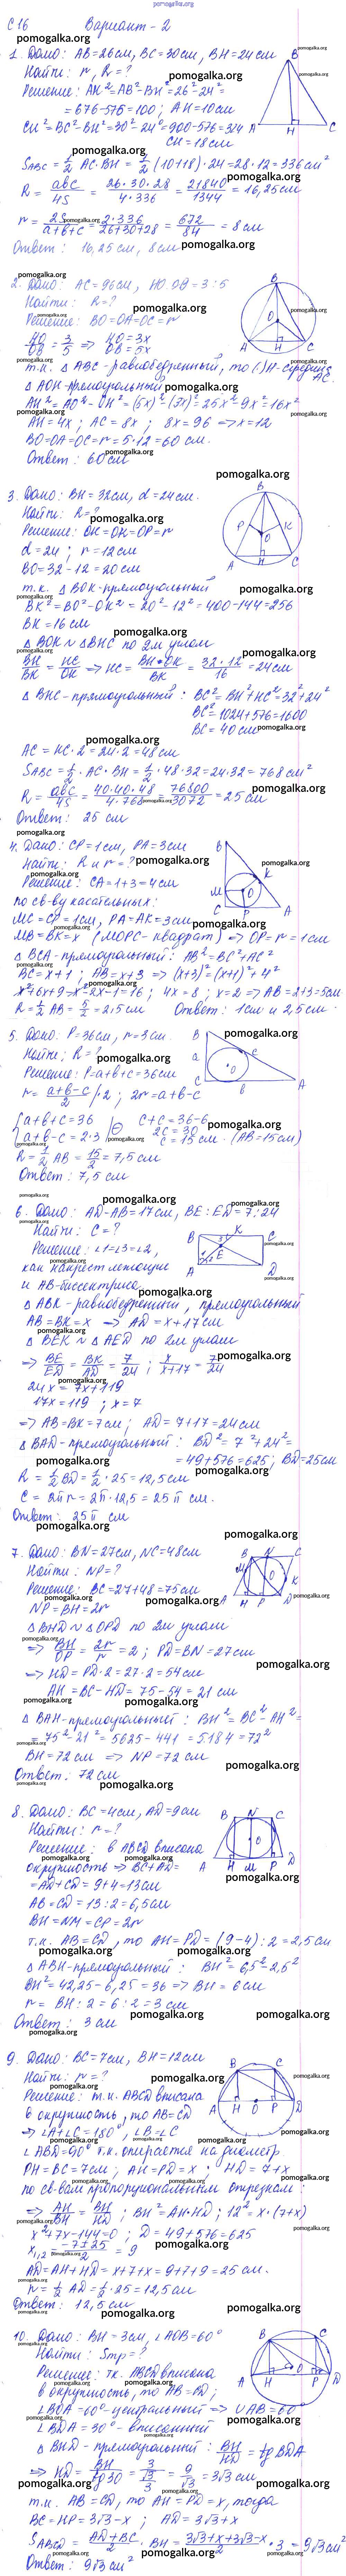 С 16 Вариант - 2
1. Дано: AB = 26 см, BC = 30 см, BH = 24 см
Найти: r, R = ?
Решение: AH² = AB² - BH² = 26² - 24² =
= 676 - 576 = 100; AH = 10 см
CH² = BC² - BH² = 30² - 24² = 900 - 576 = 324
CH = 18 см
S_ABC = 1/2 AC · BH = 1/2 (10 + 18) · 24 = 28 · 12 = 336 см²
R = abc/4S = 26 · 30 · 28/4 · 336 = 21840/1344 = 16,25 см
r = 2S/a+b+c = 2 · 336/26+30+28 = 672/84 = 8 см
Ответ: 16,25 см, 8 см
2. Дано: AC = 96 см, HO : OB = 3 : 5
Найти: R = ?
Решение: BO = OA = OC = r
HO/OB = 3/5 => HO = 3x
OB = 5x
т.к. △ ABC - равнобедренный, то (·) H - середина AC.
△ AOH - прямоугольный
AH² = AO² - OH² = (5x)² - (3x)² = 25x² - 9x² = 16x²
AH = 4x; AC = 8x; 8x = 96 => x = 12
BO = OA = OC = r = 5 · 12 = 60 см.
Ответ: 60 см
3. Дано: BH = 32 см, d = 24 см.
Найти: R = ?
Решение: OH = OK = OP = r
d = 24; r = 12 см
BO = 32 - 12 = 20 см
т.к. △ BOK - прямоугольный
BK² = BO² - OK² = 20² - 12² = 400 - 144 = 256
BK = 16 см
△ BOK ~ △ BHC по 2м углам
BH/BK = HC/OK => HC = BH · OK/BK = 32 · 12/16 = 24 см
△ BHC - прямоугольный: BC² = BH² + HC² = 32² + 24²
BC² = 1024 + 576 = 1600
BC = 40 см
AC = HC · 2 = 24 · 2 = 48 см
S_ABC = 1/2 · AC · BH = 1/2 · 48 · 32 = 24 · 32 = 768 см²
R = abc/4S = 40 · 40 · 48/4 · 768 = 76800/3072 = 25 см
Ответ: 25 см
4. Дано: CP = 1 см, PA = 3 см
Найти: R и r = ?
Решение: CA = 1 + 3 = 4 см
по св-ву касательных:
MC = CP = 1 см, PA = AK = 3 см
MB = BK = x (MOPC - квадрат) => OP = r = 1 см
△ BCA - прямоугольный: AB² = BC² + AC²
BC = x + 1; AB = x + 3 => (x+3)² = (x+1)² + 4²
x² + 6x + 9 - x² - 2x - 1 = 16; 4x = 8; x = 2 => AB = 2 + 3 = 5 см
R = 1/2 AB = 5/2 = 2,5 см Ответ: 1 см и 2,5 см
5. Дано: P = 36 см, r = 3 см.
Найти: R = ?
Решение: P = a + b + c = 36 см
r = a+b-c/2 | · 2; 2r = a + b - c
{ a + b + c = 36
a + b - c = 2 · 3 | ⊖ c + c = 36 - 6
2c = 30
c = 15 см (AB = 15 см)
R = 1/2 AB = 15/2 = 7,5 см
Ответ: 7,5 см
6. Дано: AD - AB = 17 см, BE : ED = 7 : 24
Найти: C = ?
Решение: ∠1 = ∠3 = ∠2,
как накрест лежащие
и AB - биссектриса
△ ABK - равнобедренный, прямоугольный
AB = BK = x => AD = x + 17 см
△ BEK ~ △ AED по 2м углам
=> BE/ED = BK/AD = 7/24; x/x+17 = 7/24
24x = 7x + 119
17x = 119; x = 7
=> AB = BK = 7 см; AD = 7 + 17 = 24 см
△ BAD - прямоугольный: BD² = 7² + 24² =
= 49 + 576 = 625; BD = 25 см
R = 1/2 BD = 1/2 · 25 = 12,5 см
C = 2πr = 2π · 12,5 = 25π см.
Ответ: 25π см
7. Дано: BN = 27 см, NC = 48 см
Найти: NP = ?
Решение: BC = 27 + 48 = 75 см
NP = BH = 2r
△ BHD ~ △ OPD по 2м углам
=> BH/OP = 2r/r = 2; PD = BN = 27 см
=> HD = PD · 2 = 27 · 2 = 54 см
AH = BC - HD = 75 - 54 = 21 см
△ BAH - прямоугольный: BH² = BC² - AH² =
= 75² - 21² = 5625 - 441 = 5184 = 72²
BH = 72 см => NP = 72 см
Ответ: 72 см
8. Дано: BC = 4 см, AD = 9 см
Найти: r = ?
Решение: в ABCD вписана
окружность => BC + AD =
= AD + CD = 9 + 4 = 13 см
AB = CD = 13 : 2 = 6,5 см
BH = NM = CP = 2r
т.к. AB = CD, то AH = PD = (9 - 4) : 2 = 2,5 см
△ ABH - прямоугольный: BH² = 6,5² - 2,5²
BH² = 42,25 - 6,25 = 36 => BH = 6 см
r = BH : 2 = 6 : 2 = 3 см
Ответ: 3 см
9. Дано: BC = 7 см, BH = 12 см
Найти: r = ?
Решение: т.к. ABCD вписана
в окружность, то AB = CD
=> ∠A + ∠C = 180°, ∠B = ∠C
∠ABD = 90° т.к. опирается на диаметр
PH = BC = 7 см; AH = PD = x HD = 7 + x
по св-вам пропорциональным отрезкам:
=> AH/BH = BH/HD; BH² = AH · HD; 12² = x · (7 + x)
x² + 7x - 144 = 0; D = 49 + 576 = 625
x₁,₂ = -7 ± 25/2 = 9
AD = AH + HD = x + 7 + x = 9 + 7 + 9 = 25 см.
r = 1/2 AD = 1/2 · 25 = 12,5 см
Ответ: 12,5 см
10. Дано: BH = 3 см, ∠AOB = 60°
Найти: Sтр = ?
Решение: т.к. ABCD вписана
в окружность, то AB = CD;
∠BOA = 60° - центральный => ∪AB = 60°
∠BDA = 30° - вписанный
△ BHD - прямоугольный: BH/HD = tg BDA
=> HD = BH/tg 30 = 3/(√3/3) = 9/√3 = 3√3 см
т.к. AB = CD, то AH = PD = x, тогда
BC = HP = 3√3 - x; AD = 3√3 + x
S_ABCD = AD + BC/2 · BH = 3√3 + x + 3√3 - x/2 · 3 = 9√3 см²
Ответ: 9√3 см²
pomogalka.org